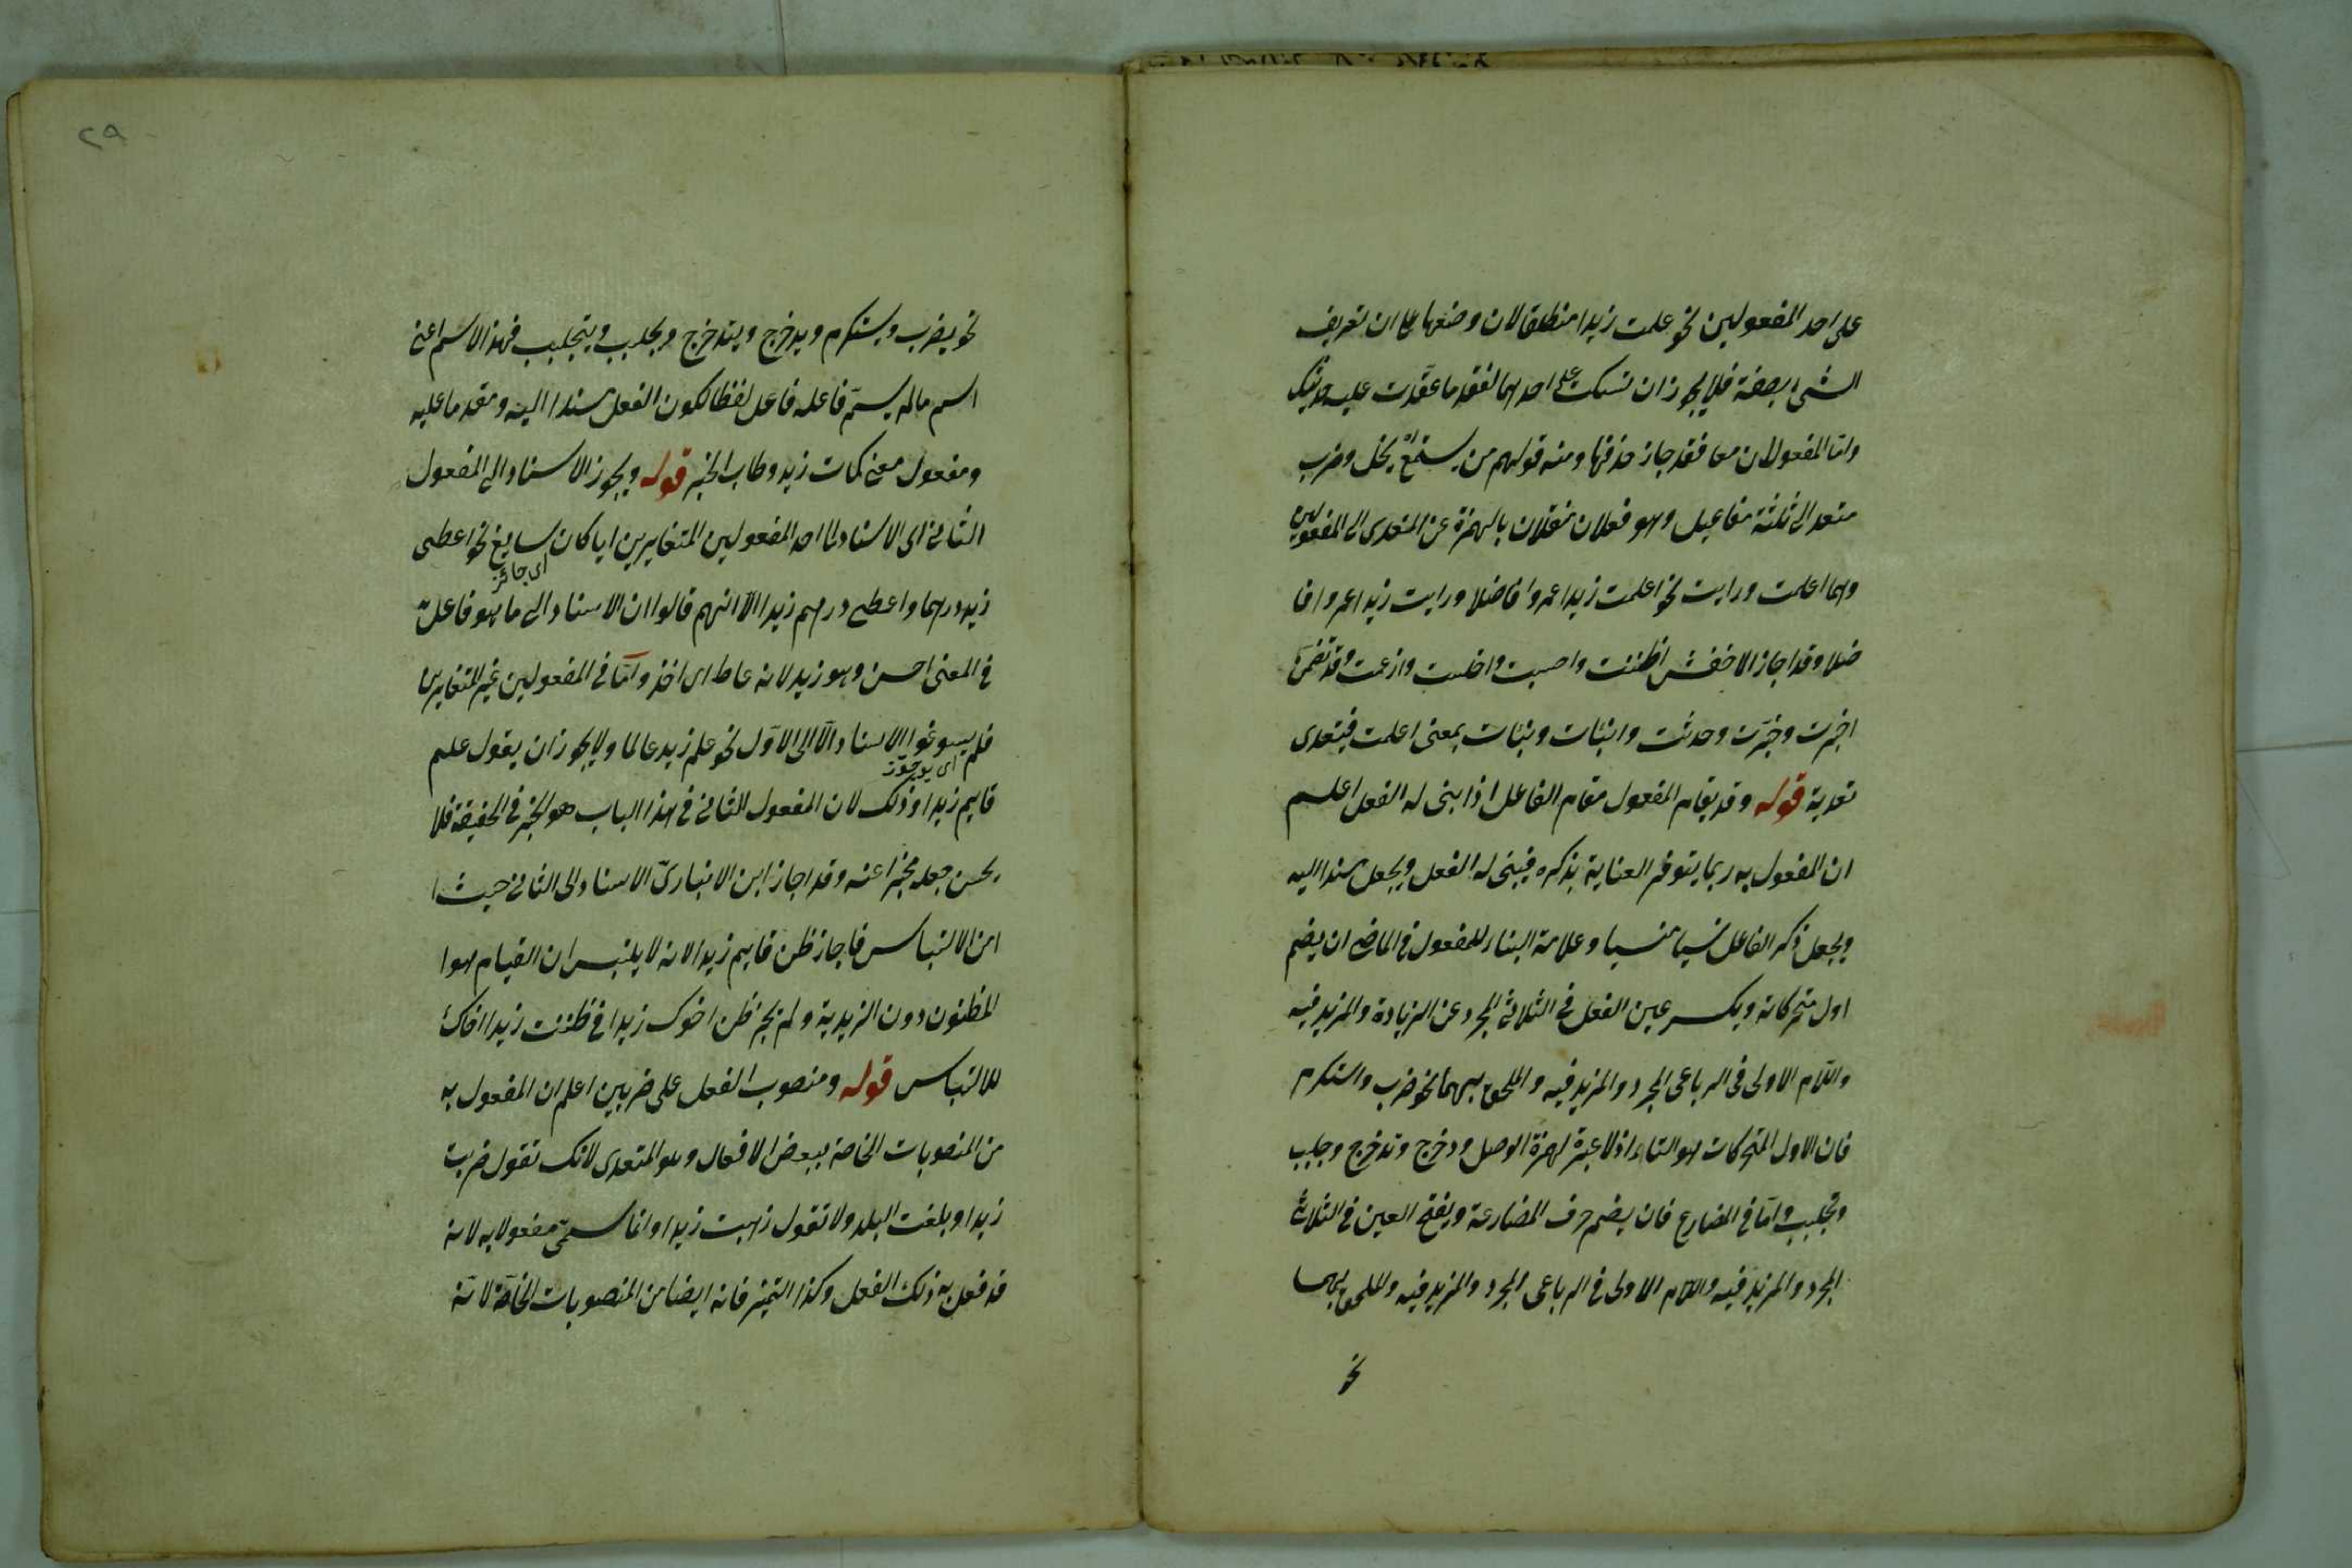 على احد المفعولين نحو علمت زيدا منطلقا لان وضعها على ان تعريف
الشىء بصفة فلا يجوز ان تسكت على احدهما لفقد ما عقدت عليه حديثك
واما المفعولان معا فقد جاز حذفهما ومنه قولهم من يسمع يخل وضرب
متعد الى ثلثة مفاعيل وهو فعلان منقلان بالهمزة عن المتعدى الى المفعولين
وهما اعلمت ورايت نحو اعلمت زيدا عمروا فاضلا ورايت زيدا عمروا فا
ضلا وقد اجاز الاخفش اظننت واحسبت واخلت وازعمت وقد تضمن
اخبرت وخبرت وحدثت وانبئات ونبئات بمعنى اعلمت فيتعدى
تعدية قوله وقد يقام المفعول مقام الفاعل اذا بنى له الفعل اعلم
ان المفعول به ربما يتوفر العناية بذكره فيبنى له الفعل ويجعل مسندا اليه
ويجعل ذكر الفاعل نسيا منسيا وعلامة البناء للمفعول فى الماضى ان يضم
اول متحركاته ويكسر عين الفعل فى الثلاثى المجرد عن الزيادة والمزيد فيه
واللام الاولى فى الرباعى المجرد والمزيد فيه والملحق بهما نحو ضرب واستكرم
فان الاول المتحركات هو التاء اذ لا عبرة لهمزة الوصل ودحرج وتدحرج وجلبب
وتجلبب واما فى المضارع فان يضم حرف المضارعة ويفتح العين فى الثلاثى
المجرد والمزيد فيه واللام الاولى فى الرباعى المجرد والمزيد فيه والملحق بهما
نحو
٢٩
نحو يضرب ويستكرم ويدحرج ويتدحرج ويجلبب ويتجلبب فهذا الاسم اعنى
اسم مالم يسم فاعله فاعل لفظا لكون الفعل مسندا اليه ومقدما عليه
ومفعول معنى كمات زيد وطاب الخبز قوله ويجوز الاسناد الى المفعول
الثانى اى الاسناد الى احد المفعولين المتغايرين ايا كان سايغ نحو اعطى
اى جائز
زيد درهما واعطى درهم زيدا الا انهم قالوا ان الاسناد الى ما هو فاعل
فى المعنى احسن وهو زيد لانه عاط اى اخذ واما فى المفعولين غير المتغايرين
فلم يسوغوا الاسناد الا الى الاول نحو علم زيد عالما ولا يجوز ان يقول علم
اى يوجوز
قايم زيدا وذلك لان المفعول الثانى فى هذا الباب هو الخبر فى الحقيقة فلا
يحسن جعله مخبرا عنه وقد اجاز ابن الانبارى الاسناد الى الثانى حيث ا
من الالتباس فاجاز ظن قايم زيدا لانه لا يلتبس ان القيام هو ا
لمظنون دون الزيدية ولم يجز ظن اخوك زيدا فى ظننت زيدا اخاك
للالتباس قوله ومنصوب الفعل على ضربين اعلم ان المفعول به
من المنصوبات الخاصة ببعض الافعال وهو المتعدى لانك تقول ضربت
زيدا وبلغت البلد ولا تقول ذهبت زيدا وانما سمى مفعولا به لانه
قد فعل به ذلك الفعل وكذا التميز فانه ايضا من المنصوبات الخاصة لانه